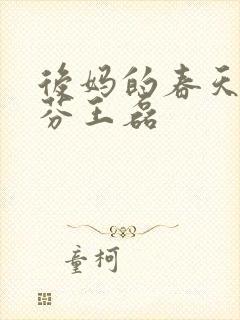 後妈的春天
芬王磊
童柯